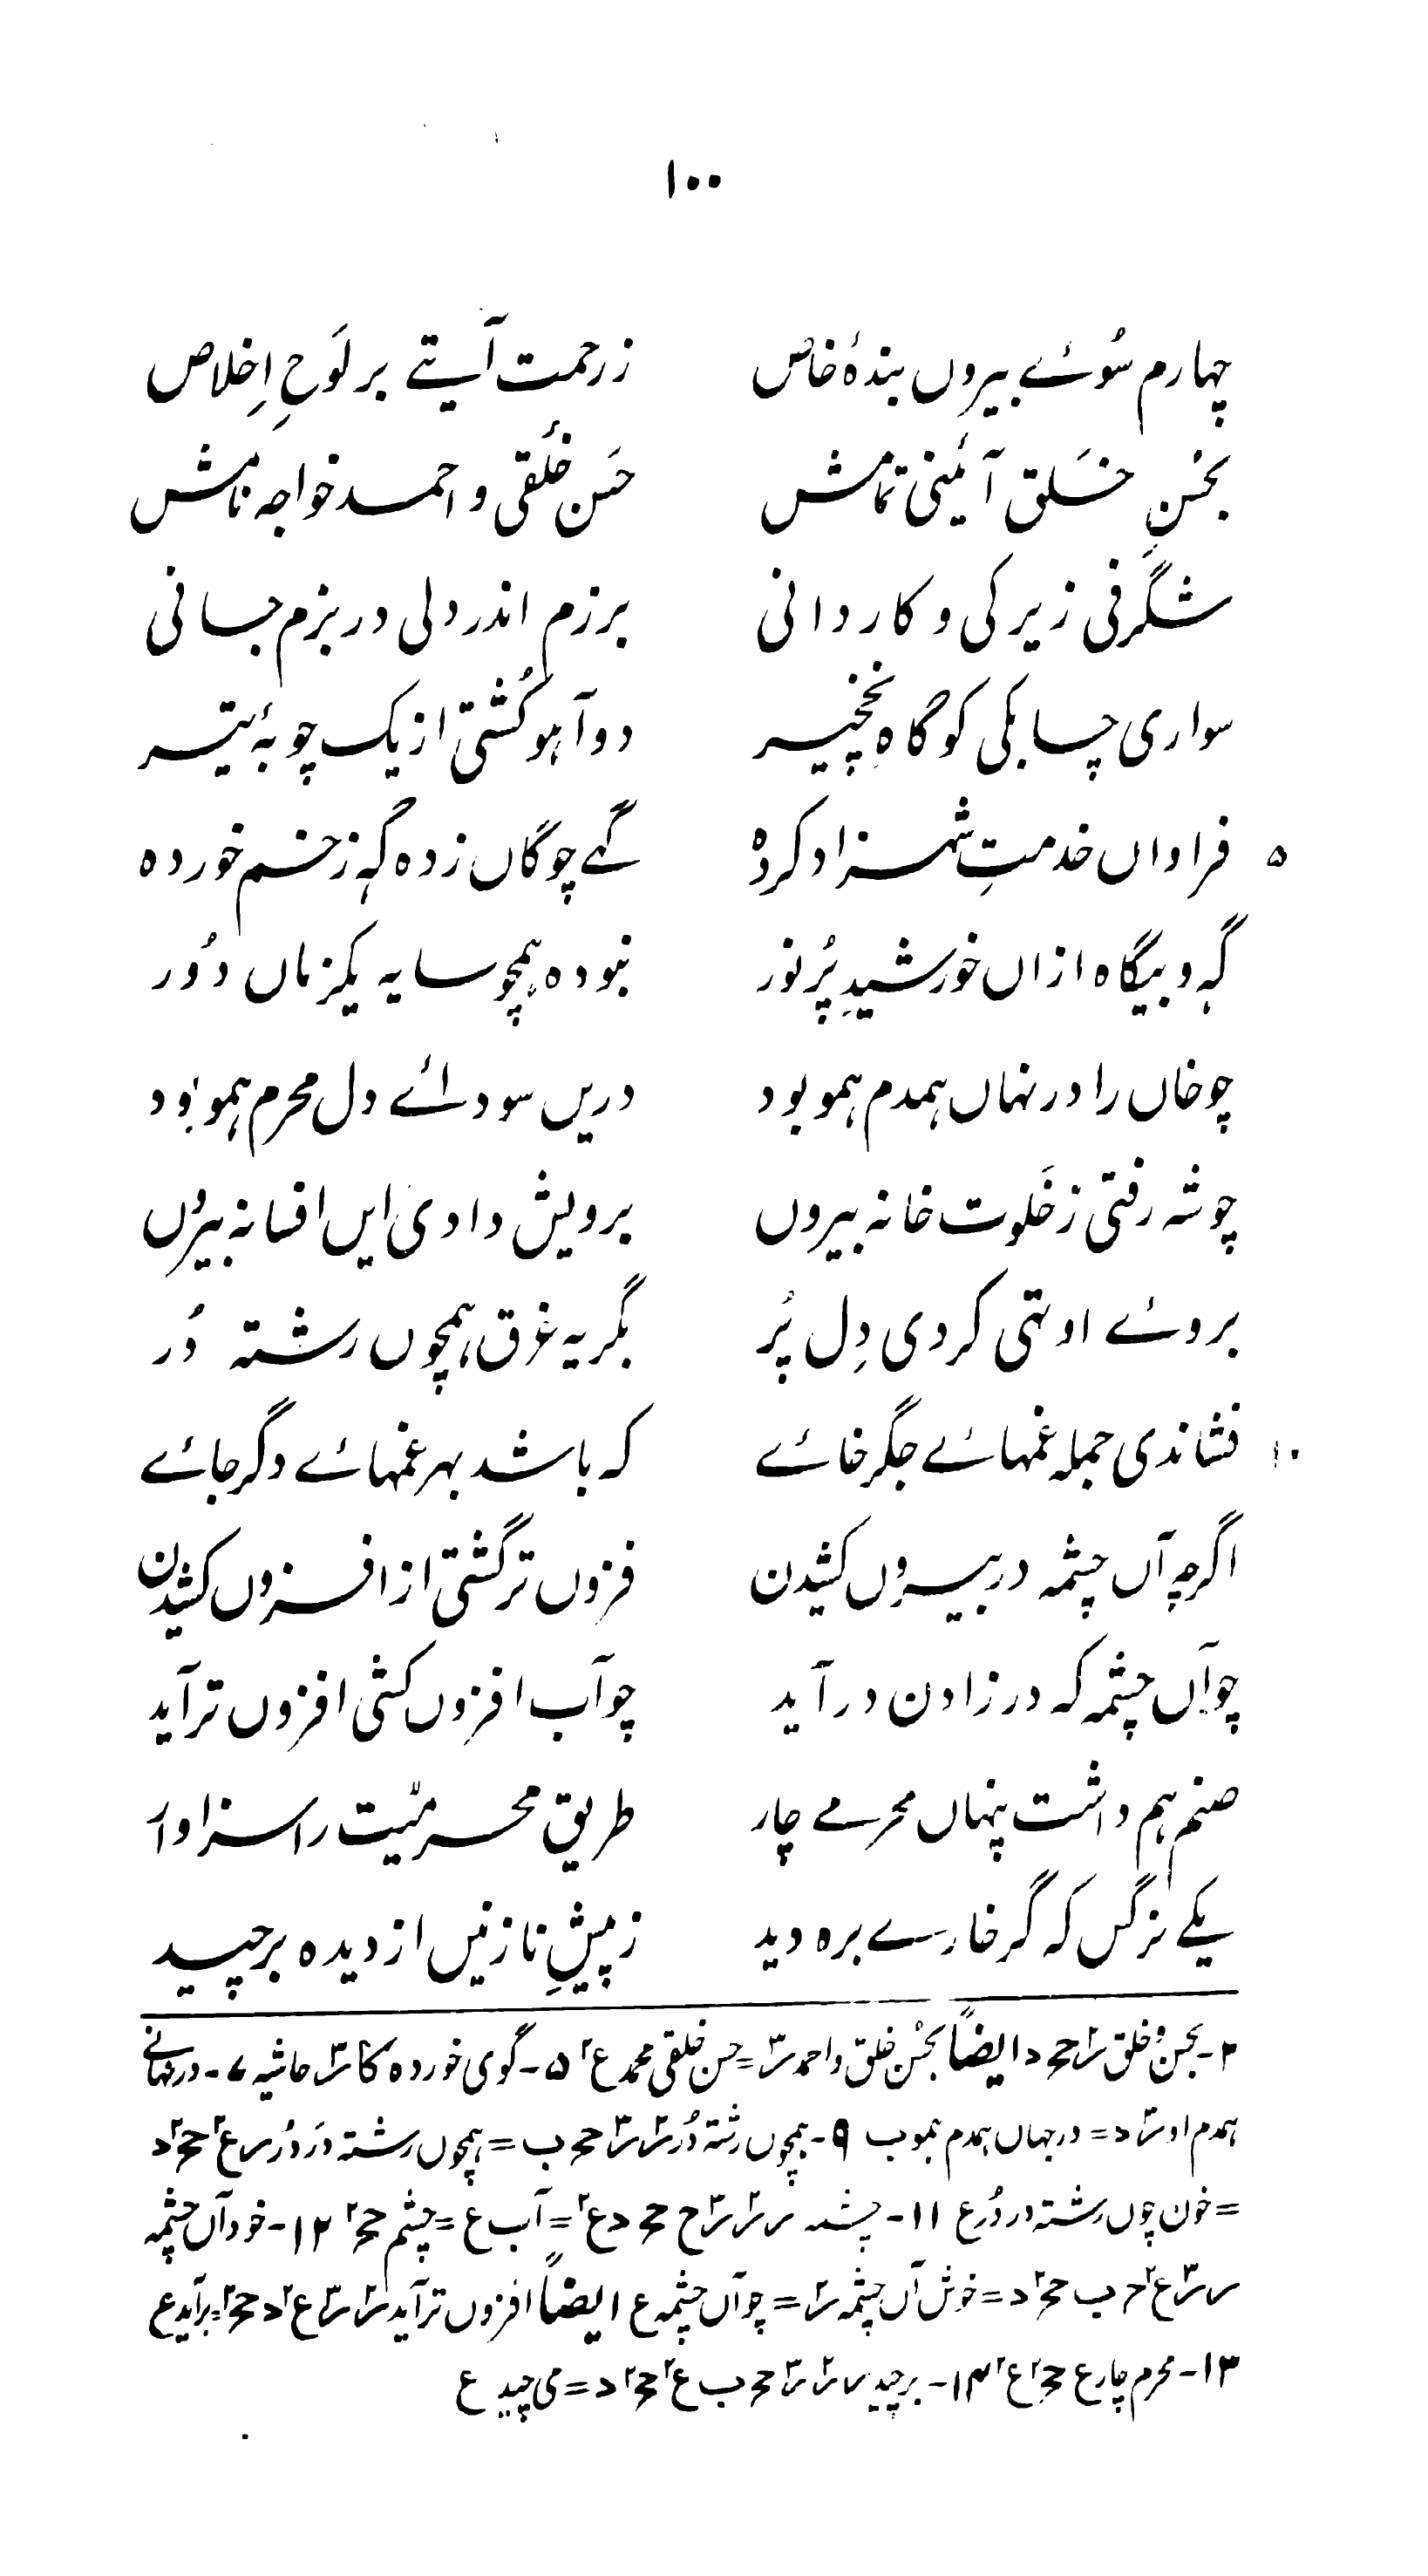 ۱۰۰
چہارم سُوئے بیروں بندۂ خاص زرحمت آیتے بر لَوحِ اِخلاص
بحُسنِ خَلق آئینی تمامش حسَن خُلقی و احمد خواجہ نامش
شگرفی زیرکی و کاردانی برزم اندر دلی در بزم جانی
سواری چابکی کو گاہِ نخچیر دو آہو کُشتی از یک چوبۂ تیر
۵ فراواں خدمتِ شہزاد کردہ گہے چوگاں زدہ گہ زخم خوردہ
گہ و بیگاہ ازاں خورشیدِ پُر نور نبودہ ہمچو سایہ یکزماں دُور
چو خاں را در نہاں ہمدم ہمو بود دریں سودائے دل محرم ہمو بود
چو شہ رفتی ز خَلوت خانہ بیروں برویش دادی ایں افسانہ بیروں
بروئے او تہی کردی دِل پُر بگریہ غرق ہمچوں رشتہ دُر
۱۰ فشاندی جملہ غمہائے جگر خائے کہ باشد بہر غمہائے دگر جائے
اگرچہ آں چشمہ در بیروں کشیدن فزوں تر گشتی از افزوں کشیدن
چو آں چشمہ کہ در زادن در آید چو آب افزوں کشی افزوں تر آید
صنم ہم داشت پنہاں محرمے چار طریق محرمیّت را سزاوار
یکے نرگس کہ گر خارے برہ دید ز پیشِ نازنیں از دیدہ برچید
۲- بحسن و خلق ر۲ حج د ایضاً بحُسن خلق و احمد ر۳ = حسن خلقی محمد ع۲ ۵- گوی خوردہ کا ر۳ حاشیہ ۷- در نہانے
ہمدم او ر۳ د = در جہاں ہمدم ہمو ب ۹- ہمچوں رشتۂ دُر ر۲ ر۳ حج ب = ہمچوں رشتہ دَر دُر ر ع۲ حج۲ د
= خون چوں رشتہ در دُر ع ۱۱- چشمہ ر ر۲ ر۳ ح حج د ع۲ = آب ع = چشم حج۲ ۱۲- خود آں چشمہ
ر ر۳ ع۲ ح ب حج۲ د = خوش آں چشمہ ر۲ = چو آں چشمہ ع ایضاً افزوں تر آید ر۲ ر۳ ع۲ د حج۲ = برآید ع
۱۳- محرم چار ع حج۲ ع۲ ۱۴- برچید ر ر۲ ر۳ حج ب ع۲ حج۲ د = می چید ع